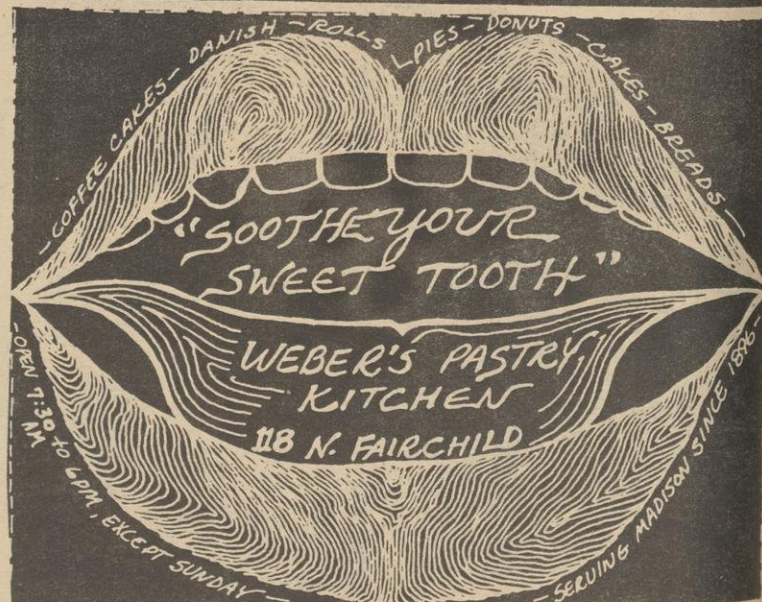 -COFFEE CAKES- DANISH -ROLLS
PIES- DONUTS -CAKES- BREADS-
"SOOTHE YOUR
SWEET TOOTH"
WEBER'S PASTRY
KITCHEN
118 N. FAIRCHILD
-OPEN 7:30 to 6PM, EXCEPT SUNDAY-
AM
-SERVING MADISON SINCE 1896-